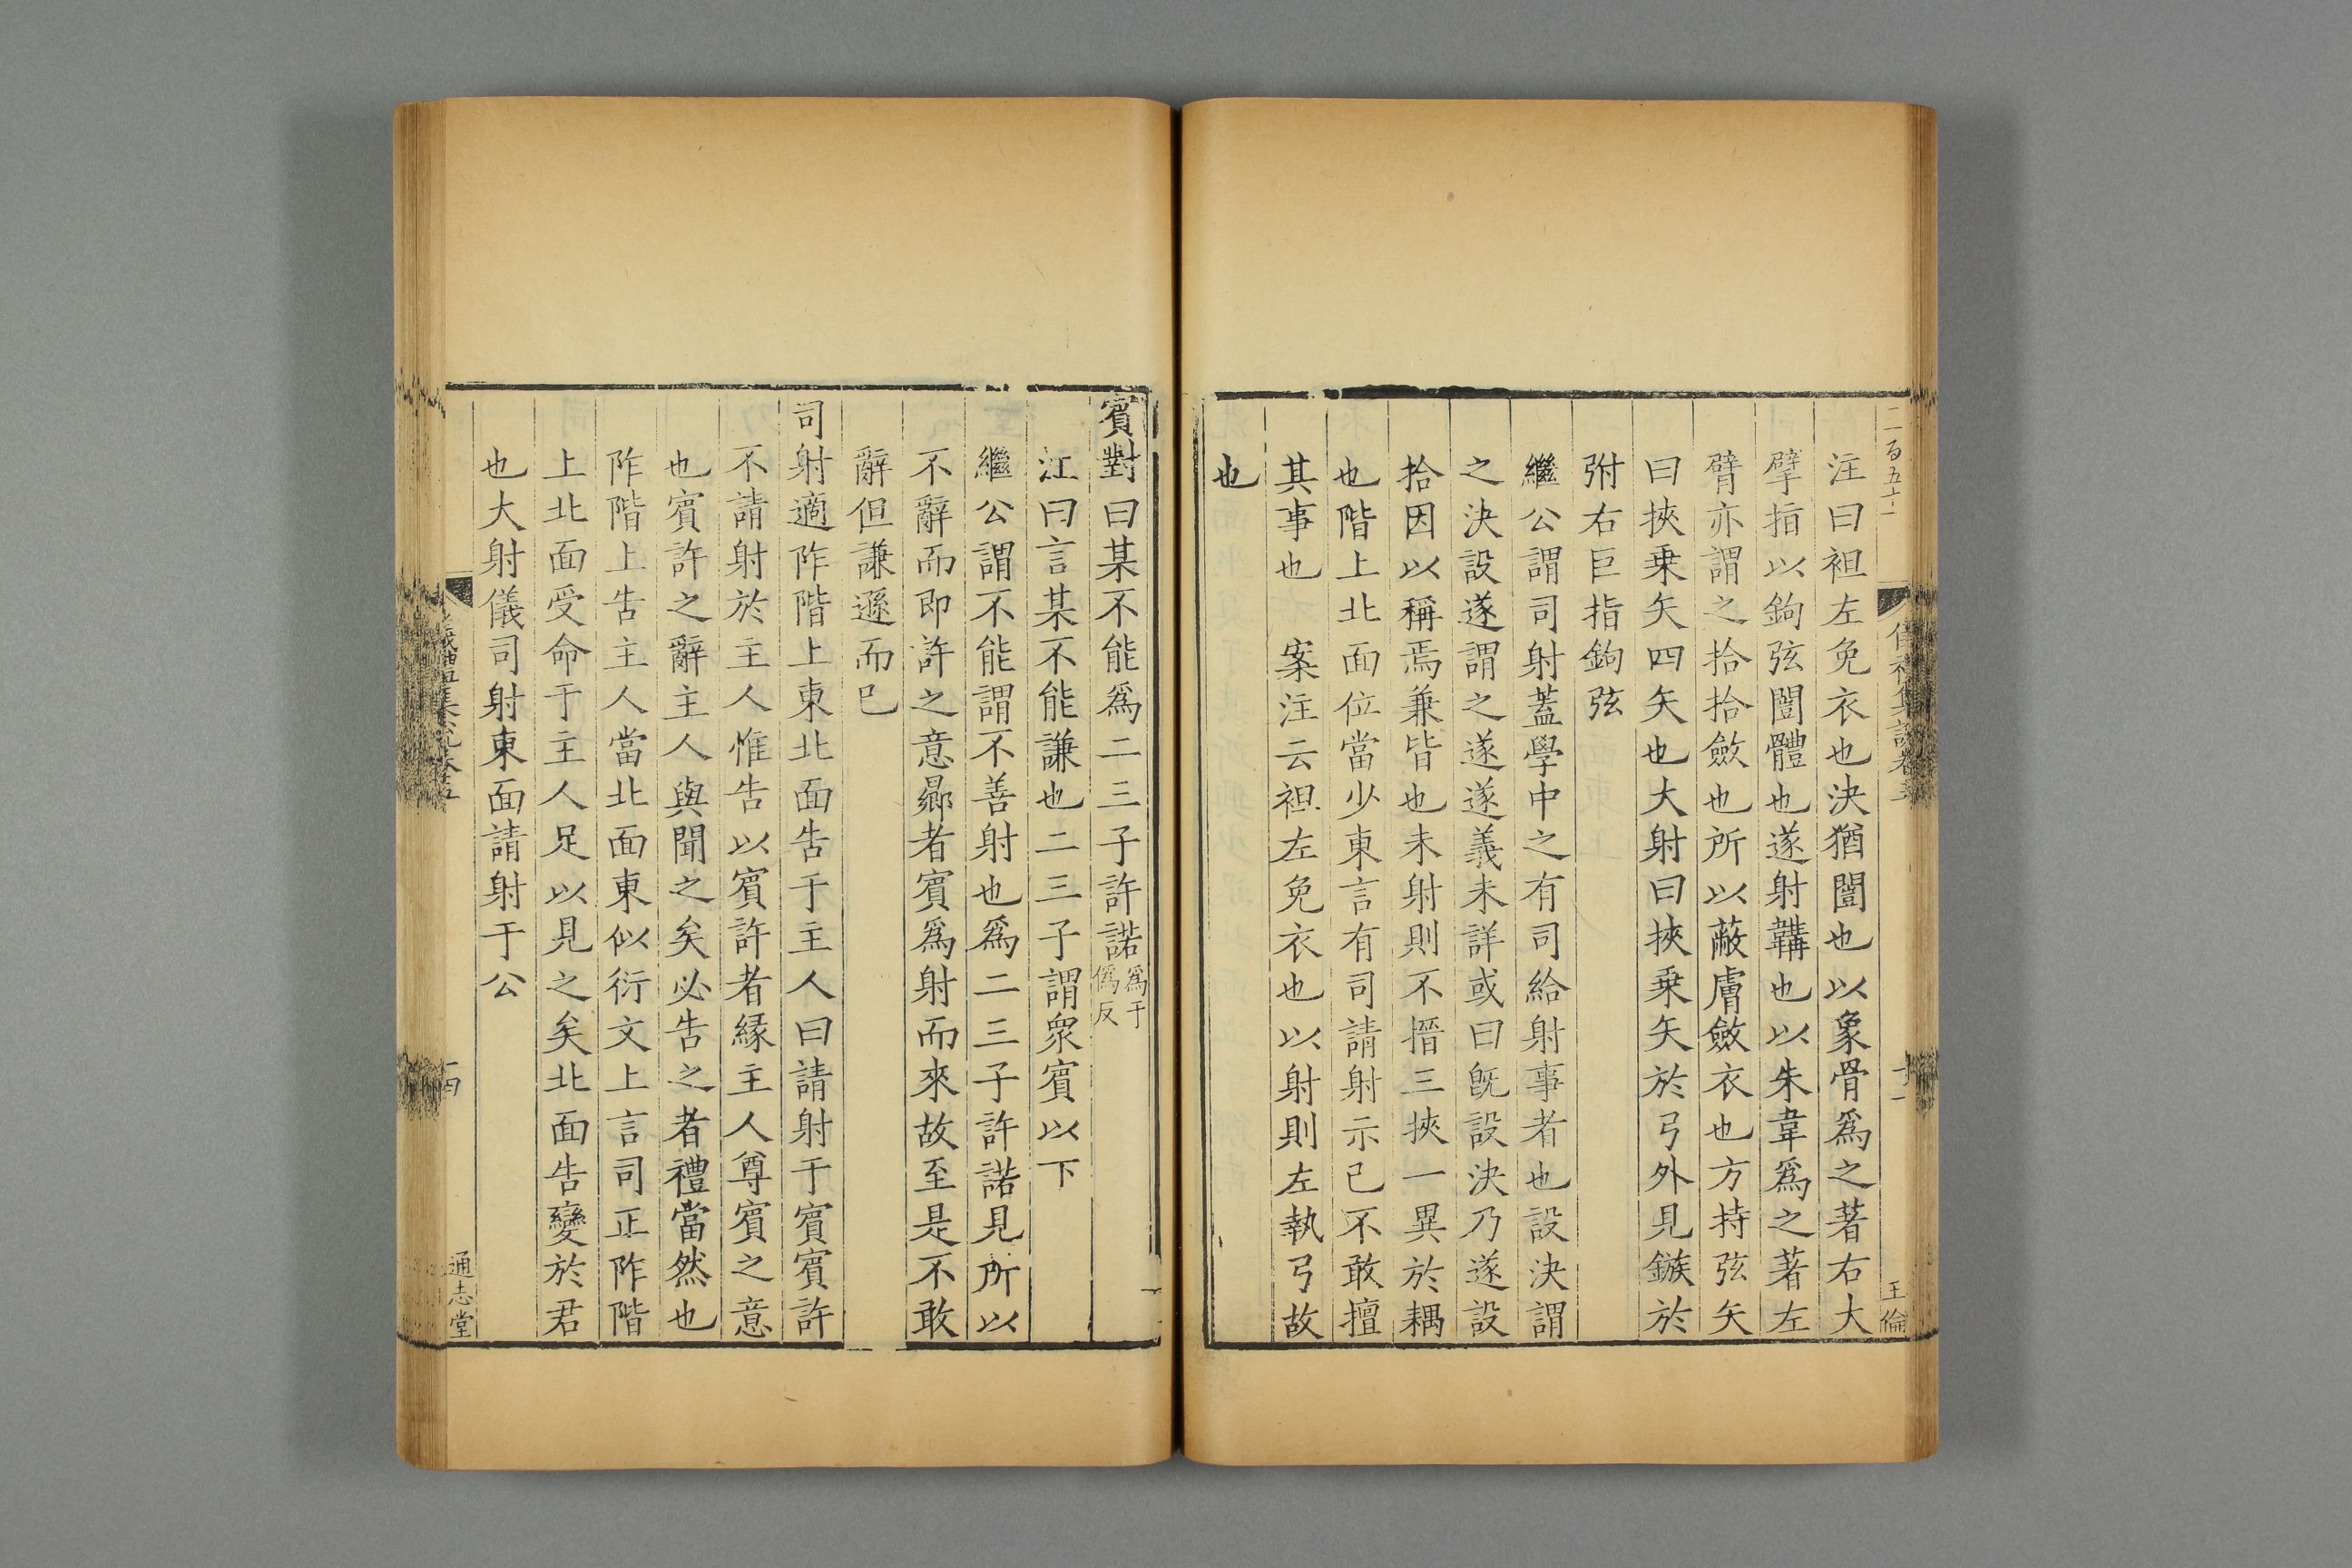 二百五十二
注曰袒左免衣也決猶闓也以象骨爲之著右大
擘指以鉤弦闓體也遂射韝也以朱韋爲之著左
臂亦謂之拾拾斂也所以蔽膚斂衣也方持弦矢
曰挾乗矢四矢也大射曰挾乗矢於弓外見鏃於
弣右巨指鉤弦
繼公謂司射蓋學中之有司給射事者也設決謂
之決設遂謂之遂遂義未詳或曰旣設決乃遂設
拾因以稱焉兼皆也未射則不搢三挾一異於耦
也階上北面位當少東言有司請射示已不敢擅
其事也　案注云袒左免衣也以射則左執弓故
也
王倫
賓對曰某不能爲二三子許諾爲于僞反
注曰言某不能謙也二三子謂衆賓以下
繼公謂不能謂不善射也爲二三子許諾見所以
不辭而即許之意鄉者賓爲射而來故至是不敢
辭但謙遜而已
司射適阼階上東北面告于主人曰請射于賓賓許
不請射於主人惟告以賓許者縁主人尊賓之意
也賓許之辭主人與聞之矣必告之者禮當然也
阼階上告主人當北面東似衍文上言司正阼階
上北面受命于主人足以見之矣北面告變於君
也大射儀司射東面請射于公
通志堂